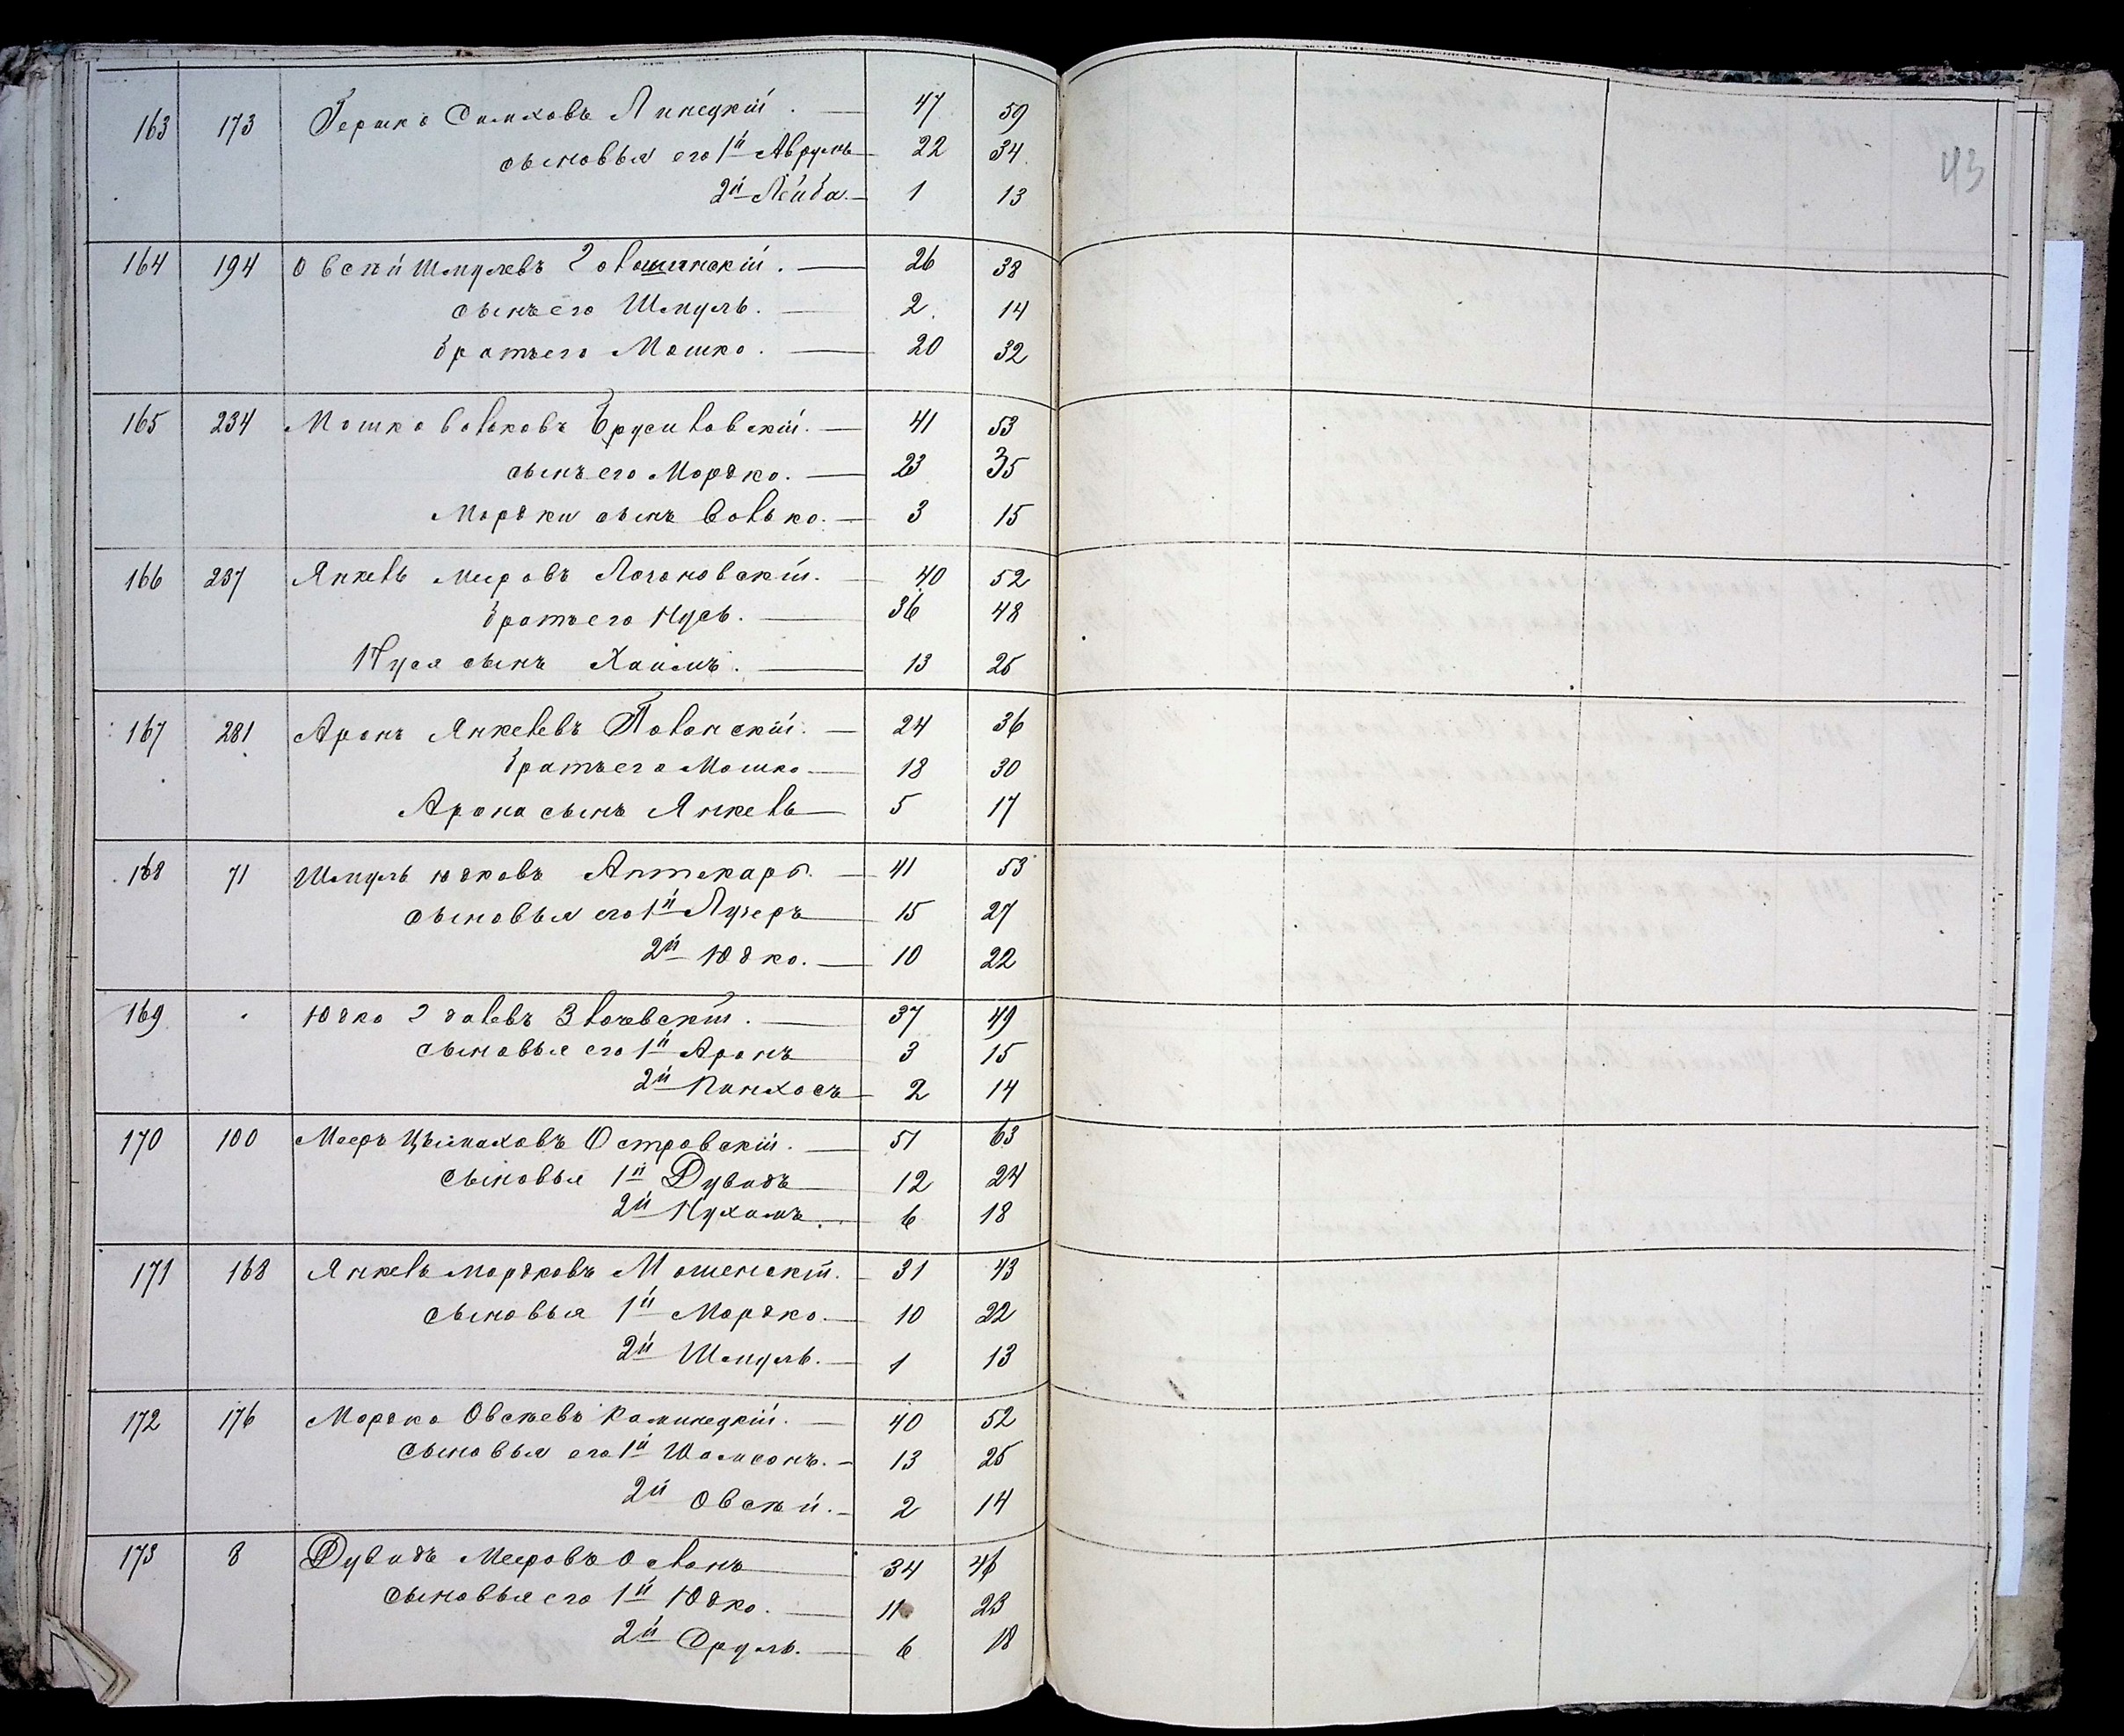 163 173 Гершко Симховъ Линецкій. — 47 59
сыновья его 1й Аврумъ — 22 34
2й Лейба. — 1 13
43
164 194 Овсѣй Шмулевъ — 26 38
сынъ его Шмуль. — 2. 14
братъ его Мошко. — 20 32
165 234 Мошко Вольковъ Брусиловскій. — 41 53
сынъ его Мордко. — 23 35
Мордки сынъ Волько. — 3 15
166 237 Янкель Мееровъ Логоновскій. — 40 52
братъ его Нусь. — 36 48
Нуся сынъ Хаимъ. — 13 25
167 281 Аронъ Янкелевъ Полонскій. — 24 36
братъ его Мошко — 18 30
Арона сынъ Янкель — 5 17
168 71 Шмуль Юдковъ Аптекарь. — 41 53
сыновья его 1й Лузеръ — 15 27
2й Юдко. — 10 22
169 Юдко Гдалевъ Злочевскій. — 37 49
сыновья его 1й Аронъ — 3 15
2й Пинхосъ — 2 14
170 100 Мееръ Цымаховъ Островскій. — 51 63
сыновья 1й Дувидъ — 12 24
2й Нухимъ. — 6 18
171 168 Янкель Мордковъ Мошенскій. — 31 43
сыновья 1й Мордко. — 10 22
2й Шмуль. — 1 13
172 176 Мордко Овсѣевъ Каминецкій. — 40 52
сыновья его 1й Шомсонъ. — 13 25
2й Овсѣй. — 2 14
173 8 Дувидъ Мееровъ — 34 46
сыновья его 1й Юдко. — 11 23
2й Сруль. — 6 18